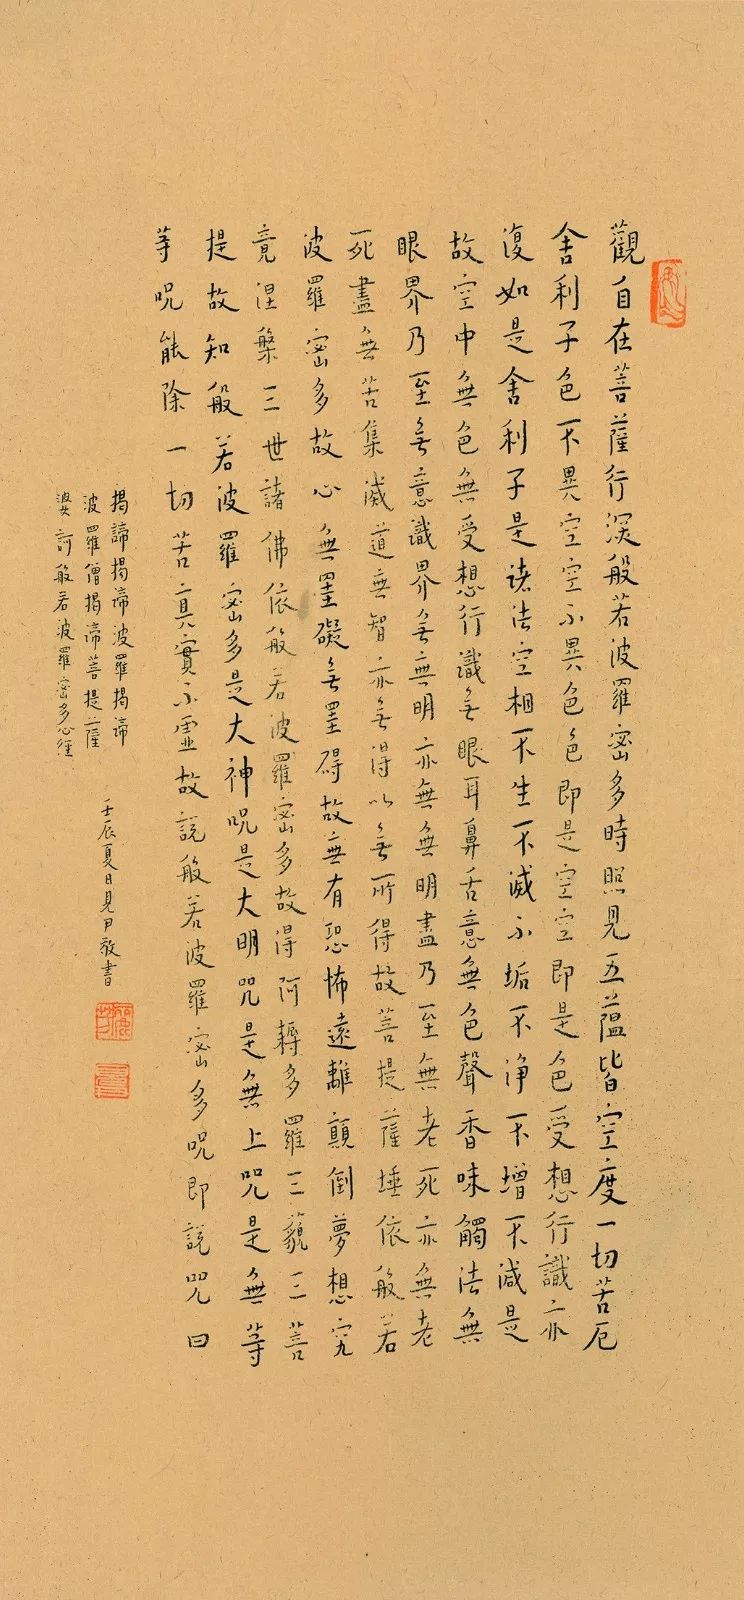 觀自在菩薩行深般若波羅密多時照見五蘊皆空度一切苦厄
舍利子色不異空空不異色色即是空空即是色受想行識亦
復如是舍利子是諸法空相不生不滅不垢不淨不增不減是
故空中無色無受想行識無眼耳鼻舌意無色聲香味觸法無
眼界乃至無意識界無無明亦無無明盡乃至無老死亦無老
死盡無苦集滅道無智亦無得以無所得故菩提薩埵依般若
波羅密多故心無罣礙無罣碍故無有恐怖遠離顛倒夢想究
竟涅槃三世諸佛依般若波羅密多故得阿耨多羅三藐三菩
提故知般若波羅密多是大神呪是大明呪是無上呪是無等
等呪能除一切苦真實不虛故說般若波羅密多呪即說呪曰
揭諦揭諦波羅揭諦
波羅僧揭諦菩提薩
婆訶般若波羅密多心徑
壬辰夏日見尹敬書